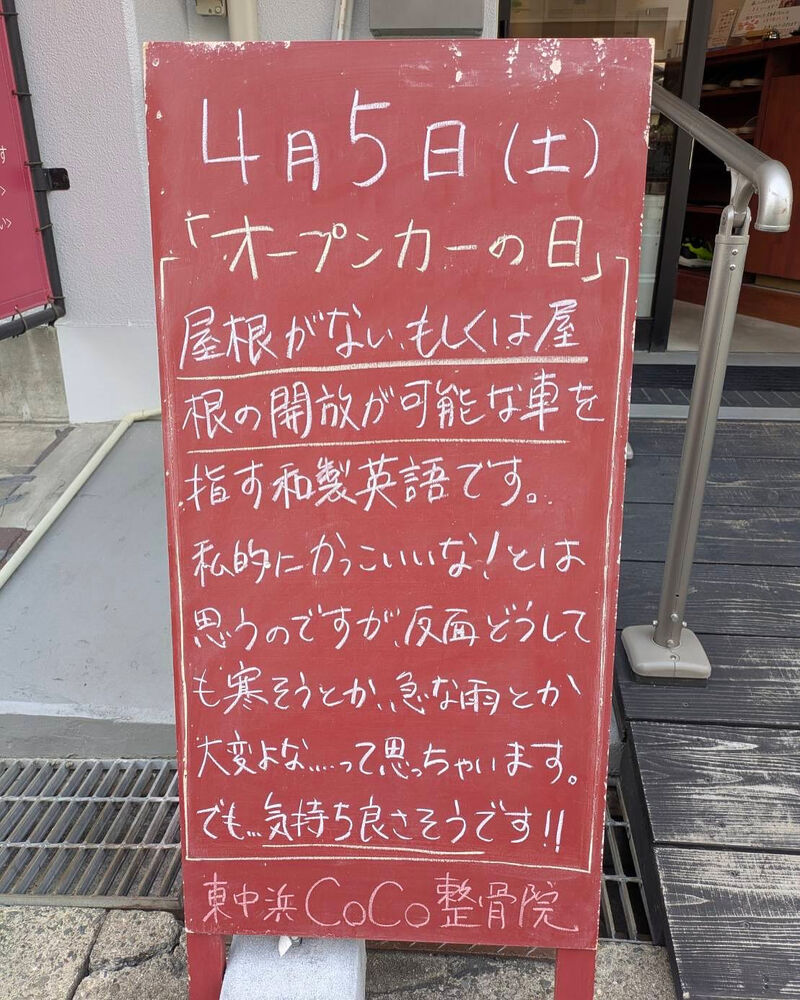 4月5日(土)
「オープンカーの日」
屋根がない、もしくは屋
根の開放が可能な車を
指す和製英語です。
私的にかっこいいな!とは
思うのですが、反面どうして
も寒そうとか、急な雨とか
大変よな....って思っちゃいます。
でも...気持ち良さそうです!!
東中浜CoCo整骨院